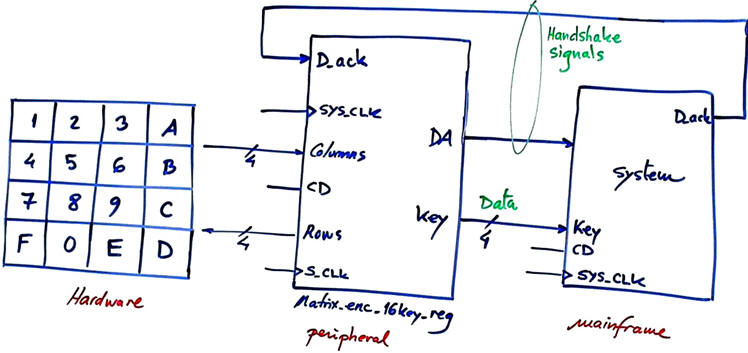 Handshake
signals
D_ack
SYS_CLK
Columns
4
CD
Rows
4
S_CLK
DA
Key
Matrix_enc_16key_reg
peripheral
1 2 3 A
4 5 6 B
7 8 9 C
F 0 E D
Hardware
Data
4
D_ack
System
Key
CD
SYS_CLK
mainframe